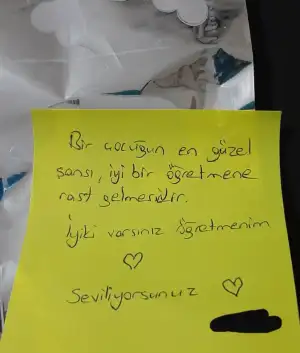 Bir çocuğun en güzel
şansı, iyi bir öğretmene
rast gelmesidir.
İyiki varsınız öğretmenim
♡
Seviliyorsunuz ♡